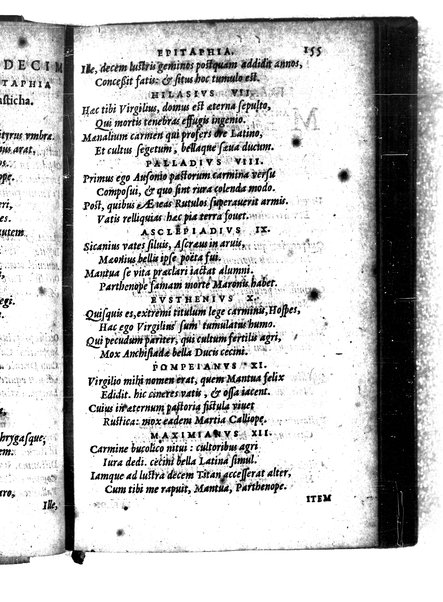 DECIM
TAPHIA
sticha.
tityrus vmbra.
pus arat,
nis.
pe.
ores
es.
autem
,
egi.
hrygasque,
ro,
Ille,
EPITAPHIA. 155
Ille, decem lustris geminos postquam addidit annos,
Concessit fatis: & situs hoc tumulo est.
HILASIVS VII.
Hac tibi Virgilius, domus est æterna sepulto,
Qui mortis tenebras effugis ingenio.
Mænalium carmen qui profers ore Latino,
Et cultus segetum, bellaque sæua ducum.
PALLADIVS VIII.
Primus ego Ausonio pastorum carmina versu
Composui, & quo sint rura colenda modo.
Post, quibus Æneas Rutulos superauerit armis.
Vatis relliquias hæc pia terra fouet.
ASCLEPIADIVS IX.
Sicanius vates siluis, Ascræus in aruis,
Mæonius bellis ipse poëta fui.
Mantua se vita præclari iactat alumni.
Parthenope famam morte Maronis habet.
EVSTHENIVS X.
Quisquis es, extremi titulum lege carminis, Hospes,
Hac ego Virgilius sum tumulatus humo.
Qui pecudum pariter, qui cultum fertilis agri,
Mox Anchisiadæ bella Ducis cecini.
POMPEIANVS XI.
Virgilio mihi nomen erat, quem Mantua felix
Edidit. hic cineres vatis, & ossa iacent.
Cuius in æternum pastoria fistula viuet
Rustica: mox eadem Martia Calliope.
MAXIMIANVS XII.
Carmine bucolico nitui: cultoribus agri
Iura dedi. cecini bella Latina simul.
Iamque ad lustra decem Titan accesserat alter,
Cum tibi me rapuit, Mantua, Parthenope.
ITEM